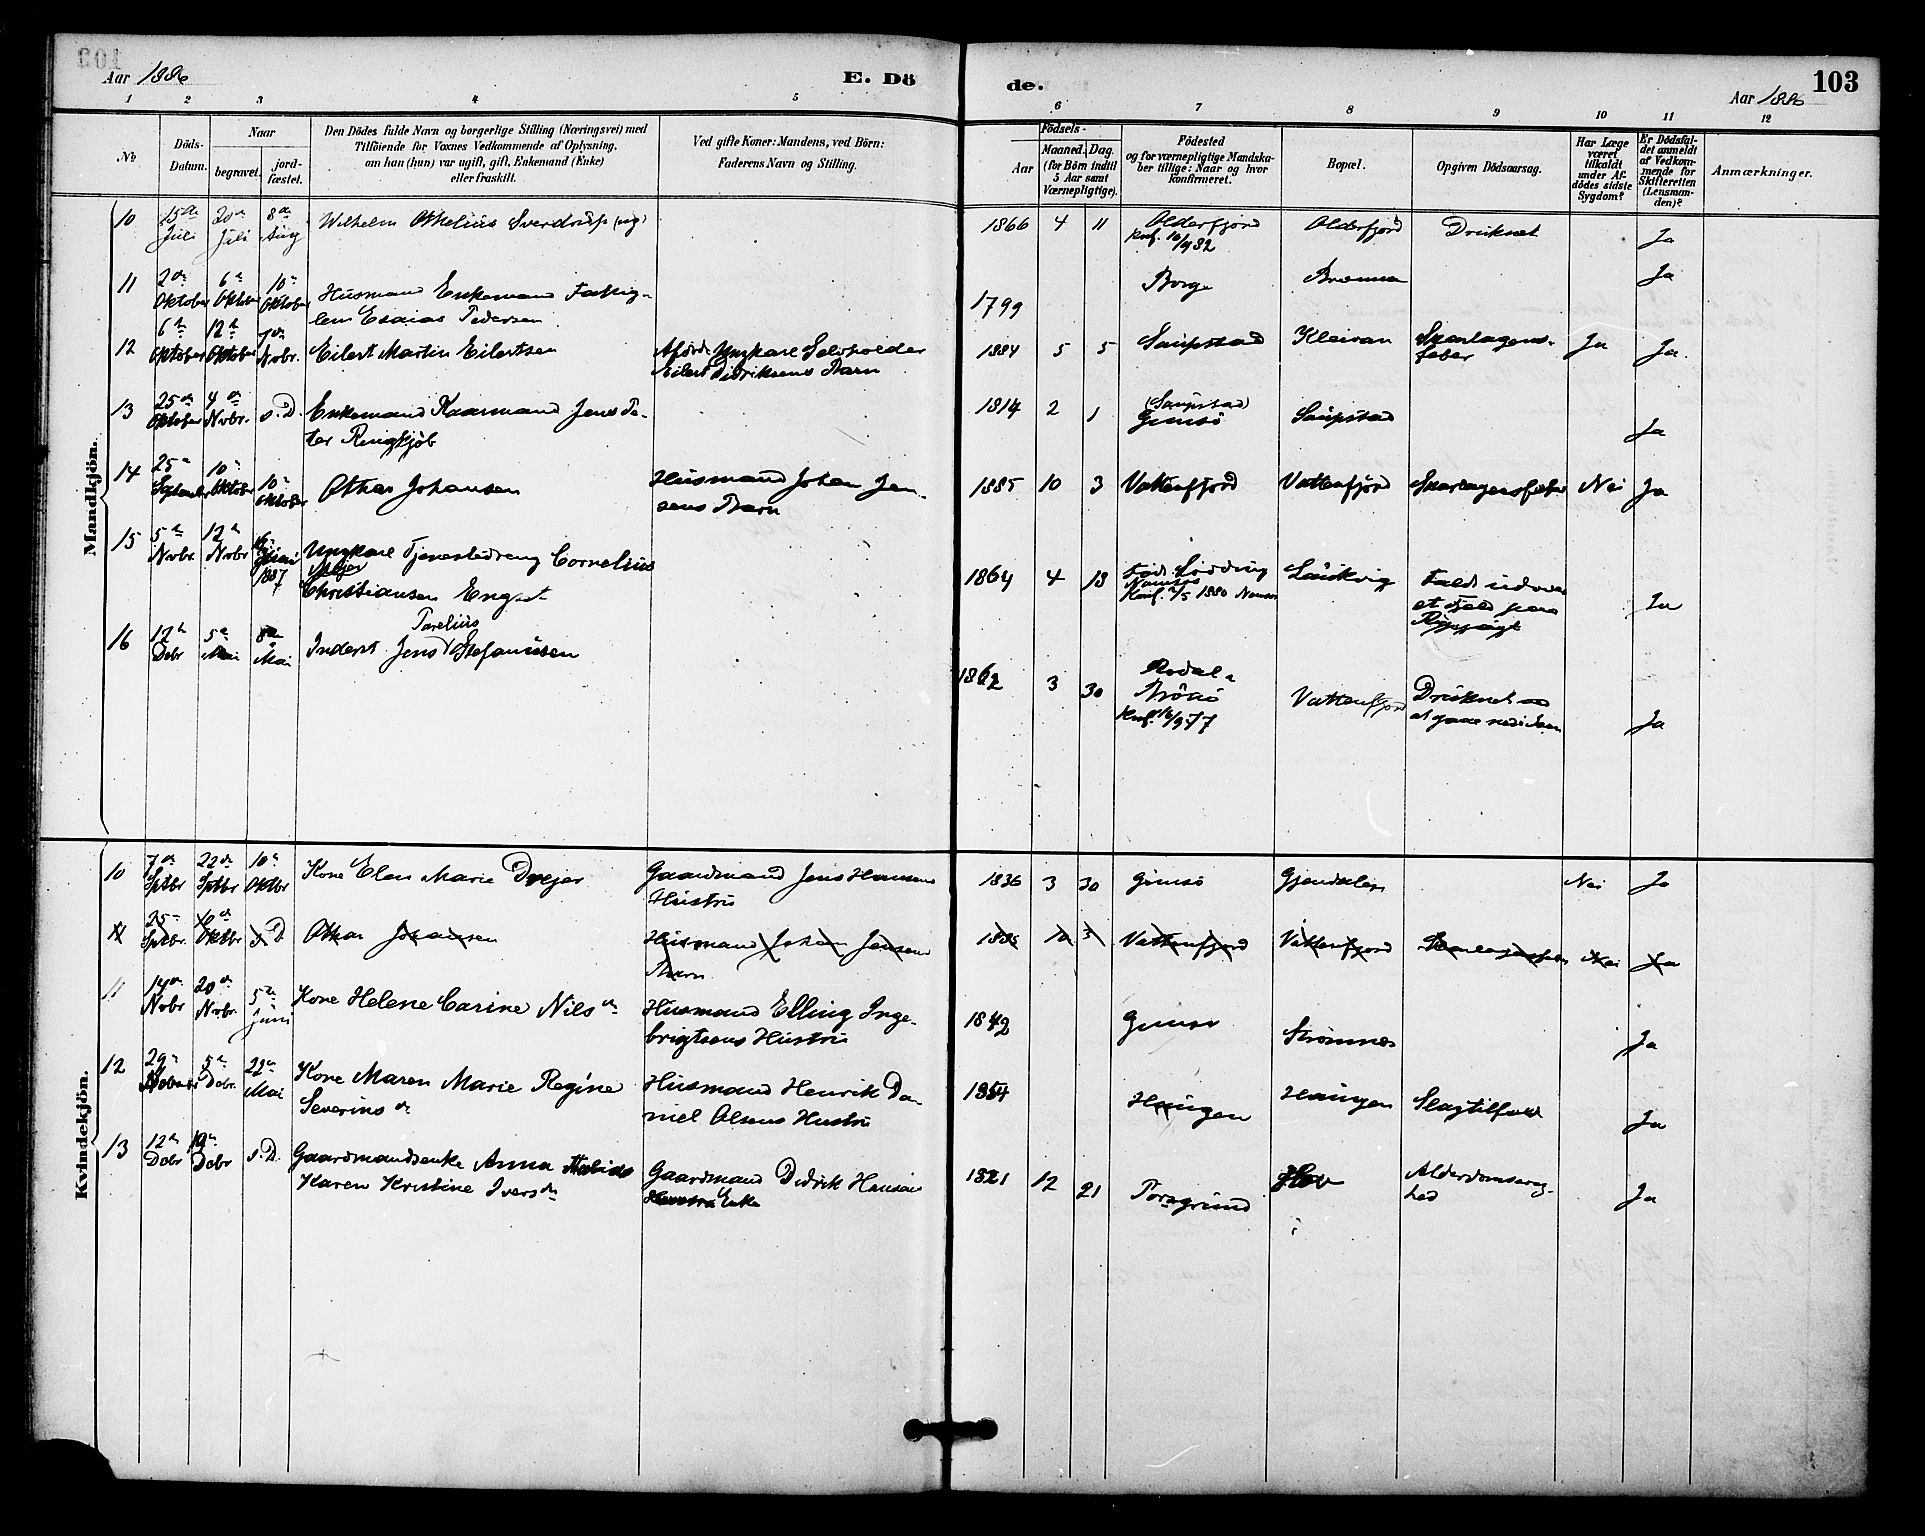 Aar 1886
E. Dö
de.
103
Aar 1886
1 2 3 4 5 6 7 8 9 10 11 12
No
Döds-Datum.
Naar
begravet.
jord-fæstet.
Den Dödes fulde Navn og borgerlige Stilling (Næringsvei) med
Tilföiende for Voxnes Vedkommende af Oplysning,
om han (hun) var ugift, gift, Enkemand (Enke)
eller fraskilt.
Ved gifte Koner: Mandens, ved Börn:
Faderens Navn og Stilling.
Födsels-
Aar
Maaned. Dag.
(for Börn indtil
5 Aar samt
Værnepligtige).
Födested
og for værnepligtige Mandska-
ber tillige: Naar og hvor
konfirmeret.
Bopæl.
Opgiven Dödsaarsag.
Har Læge
været
tilkaldt
under Af-
dödes sidste
Sygdom?
Er Dödsfal-
det anmeldt
af Vedkom-
mende for
Skifteretten
(Lensman-
den)?
Anmærkninger.
Mandkjön.
10 15de Juli 20de Juli 8de Aug Wilhelm Ottelius Sverdrup (ug) 1866 4 11 Olderfjord Konf. 10/9 82 Olderfjord Druknet Ja
11 2den Oktober 6te Oktober 10de Oktober Husmand Enkemand Fattig-
lem Esaias Pedersen 1799 Borge Ja
12 6te Oktober 12te Oktober 7de Novbr. Eilert Martin Eilertsen Afdöde Ungkarl Selvholder
Eilert Didriksens Barn 1884 5 5 Saupstad Kleivan Skarlagens-
feber Ja Ja.
13 25de Oktober 4de Novbr. s. D. Enkemand Kaarmand Jens Pe-
ter Ringkjöb 1814 2 1 (Saupstad)
Gimsö Saupstad Ja
14 25de September 10de Oktober 10de Oktober Othar Johansen Husmand Johan Jen-
sens Barn 1885 10 3 Vattenfjord Vattenfjord Skarlagensfeber Nei Ja
15 5te Novbr 12te Novbr 1887 Ungkarl Tjenestedreng Cornelius
Meyer
Christiansen Engset 1864 4 13 Namsos
Konf. 2/5 1880 Laukvig Faldt udover
et Fjeld paa
Rypejagt Ja
16 12te Debr 5te Mai 8de Mai Inderst Jens Parelius Stefanusen 1862 3 30 Konf. 16/9 77 Vattenfjord Druknet ved
at gaae ned i Isen Ja
Kvindekjön.
10 7de Sptbr 22de Sptbr 10de Oktbr Kone Elen Marie Dreyer Gaardmand Jens Hansens
Hustru 1836 3 30 Gimsö Gjendalen Nei Ja
11 25de Sptbr. 10de Oktbr s. D. Othar Johansen Husmand Johan Jensens
Barn 1885 10 3 Vattenfjord Vattenfjord Skarlagensfeber Nei Ja
11 14de Novbr 20de Novbr. 5te Juni Kone Helene Carine Nilsdr Husmand Elling Inge-
brigtsens Hustru 1842 Gimsö Strömnes Ja
12 29de November 5te Debr. 22de Mai Kone Maren Marie Regine
Severinsdr Husmand Henrik Da-
niel Olsens Hustru 1854 Haugen Haugen Slagtilfæld Ja
13 12te Debr 19de Debr s. D. Gaardmandsenke Anna Tabita
Karen Kristine Iversdr Gaardmand Didrik Hansens
Hustru Enke 1821 12 21 Porsgrund Hov Alderdomssvag-
hed Ja